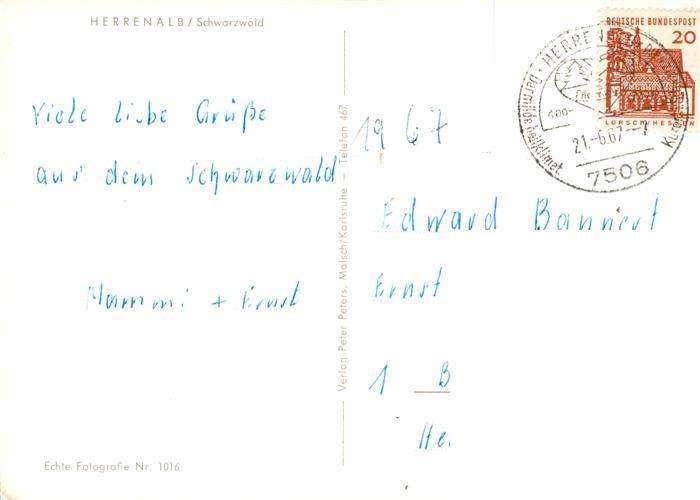 HERRENALB/Schwarzwald
Viele liebe Grüße
aus dem Schwarzwald
Mammi + Ernst
Echte Fotografie Nr. 1016
Verlag Peter Peters, Malsch/Karlsruhe — Telefon 467
DEUTSCHE BUNDESPOST
20
LORSCH/HESSEN
HERRENALB
21.-6.67
7506
1967
Edward Bannert
Ernst
1 B
He.